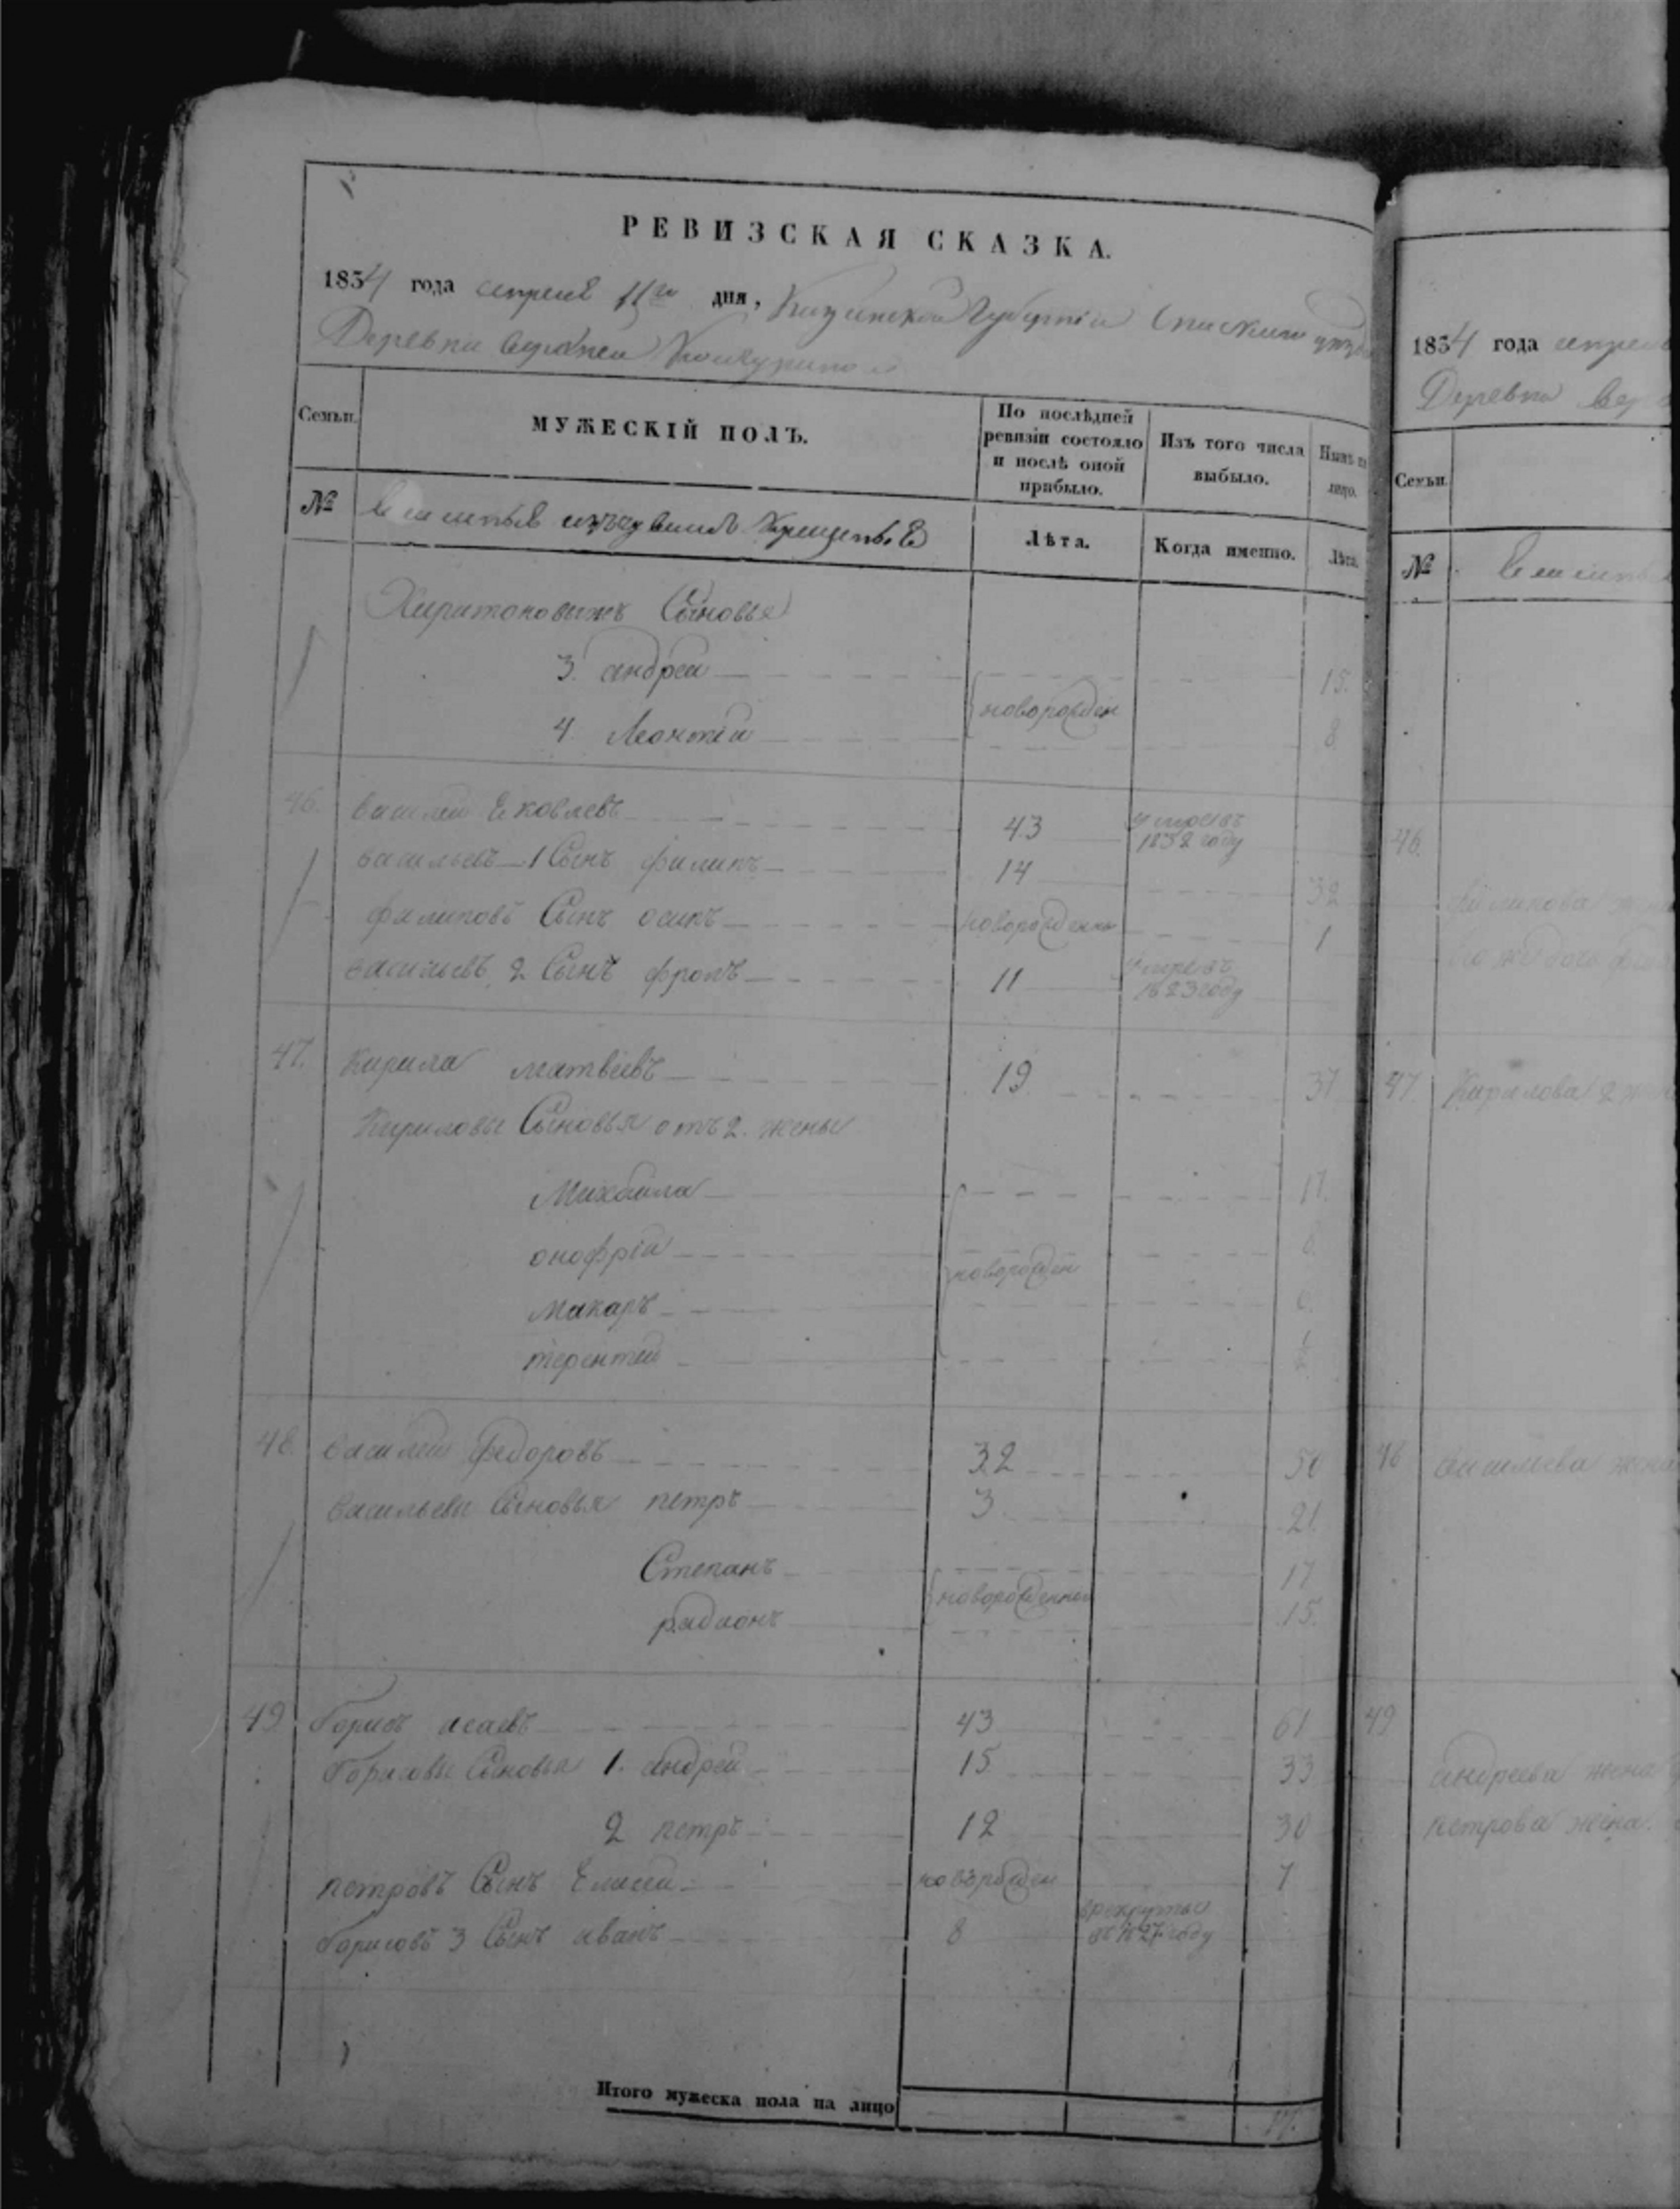 РЕВИЗСКАЯ СКАЗКА.
1834 года апреля 11го дня, Казанской Губернии Спаскаго уезда
Деревни верхней
Семьи.
МУЖЕСКІЙ ПОЛЪ.
По послѣдней ревизіи состояло и послѣ оной прибыло.
Изъ того числа выбыло.
Нынѣ на лицо.
№
изъ чувашъ
Лѣта.
Когда именно.
Лѣта.
Харитоновыхъ Сыновья
3. андреи 15.
новорожден
4. Леонтеи 8
46. василеи Ековлевъ 43 умре въ 1832 году
васильевъ 1 Сынъ филипъ 14 32
филиповъ Сынъ осипъ новорожденны 1
васильевъ 2 Сынъ фролъ 11 умре въ 1823 году
47. Кирила матвеевъ 19. 37
Кириловы Сыновья отъ 2. жены
Михаила 17.
онофріи
новорожден
макаръ
терентеи
48. василеи федоровъ 32 50
васильевы Сыновья петръ 3 21.
Степанъ 17
новорожденны
радионъ 15.
49. борисъ исаевъ 43 61
борисовы Сыновья 1. андреи 15 33
2 петръ 12 30
петровъ Сынъ Елисеи новорожден 7
борисовъ 3 Сынъ иванъ 8 в рекруты въ 1827 году
Итого мужеска пола на лицо
1834 года апреля
Деревни вер
Семьи.
№
46.
филипова жена
47. Кирилова 2 жена
48 васильева жена
49
андреева жена
петрова жена.